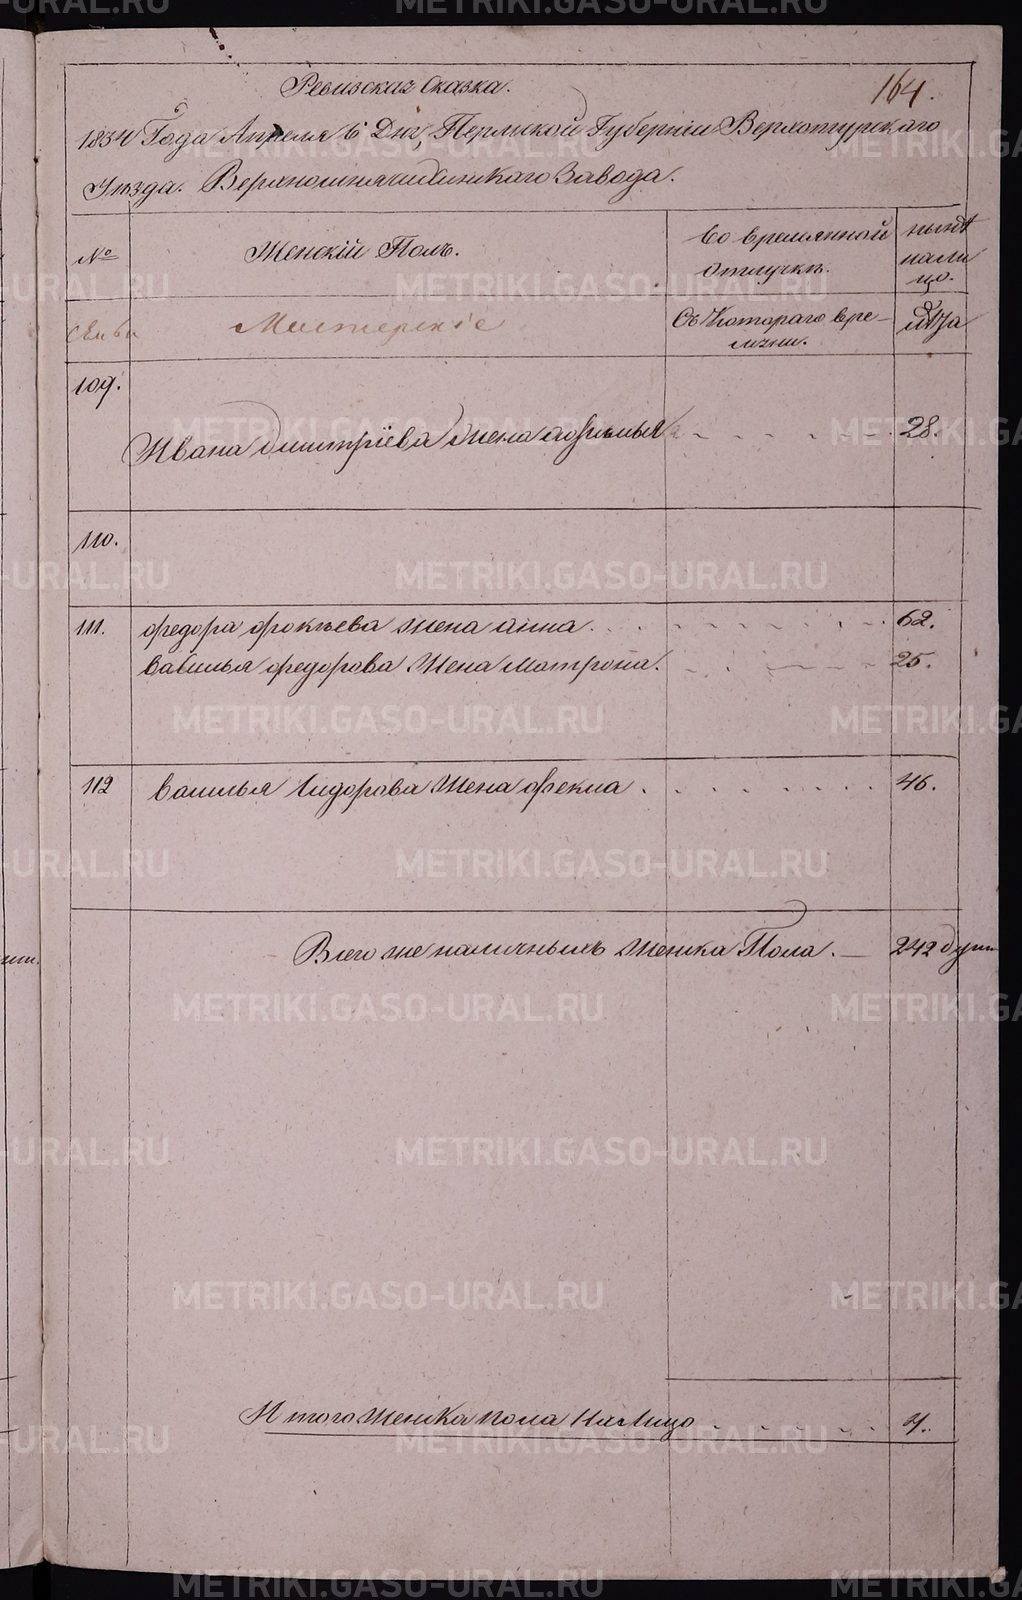 164.
Ревизская Сказка.
1834 Года Апреля 6 Дня, Пермской Губернии Верхотурскаго
Уезда. Верхнейскаго Завода.
№
Женскій Полъ.
Во временной
отлучкѣ.
нынѣ
нали
цо.
Мастерскіе
Съ Котораго вре-
мяни.
лѣта
109.
Ивана дмитріева жена афимья
28.
110.
111.
федора фокѣева жена анна.
62.
василья федорова Жена матрона.
25.
112
василья сидорова Жена фекла
46.
Всего же наличныхъ женска Пола. —
242 души
Итого женска пола на Лицо
4.
METRIKI.GASO-URAL.RU